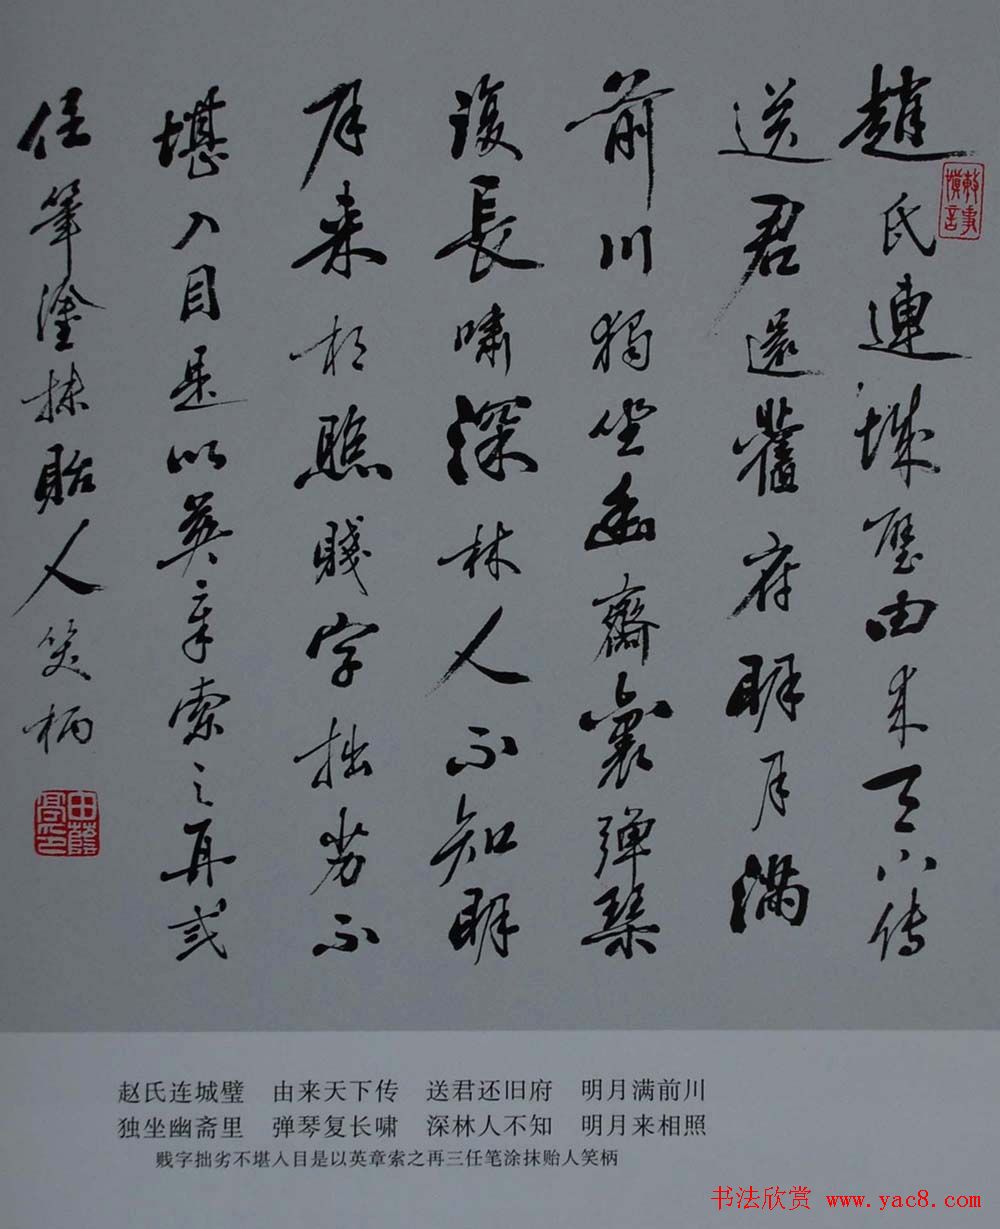 敏事慎言
趙氏連城璧由来天下傳
送君還舊府明月滿
前川獨坐幽齋裏彈琴
復長嘯深林人不知明
月来相照賤字拙劣不
堪入目是以英章索之再弎
任筆塗抹貽人笑柄
赵氏连城璧 由来天下传 送君还旧府 明月满前川
独坐幽斋里 弹琴复长啸 深林人不知 明月来相照
贱字拙劣不堪入目是以英章索之再三任笔涂抹贻人笑柄
书法欣赏 www.yac8.com